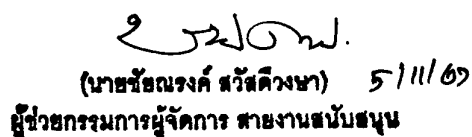 (นายชัยณรงค์ สวัสดีวงษา) 5/11/67
ผู้ช่วยกรรมการผู้จัดการ สายงานสนับสนุน